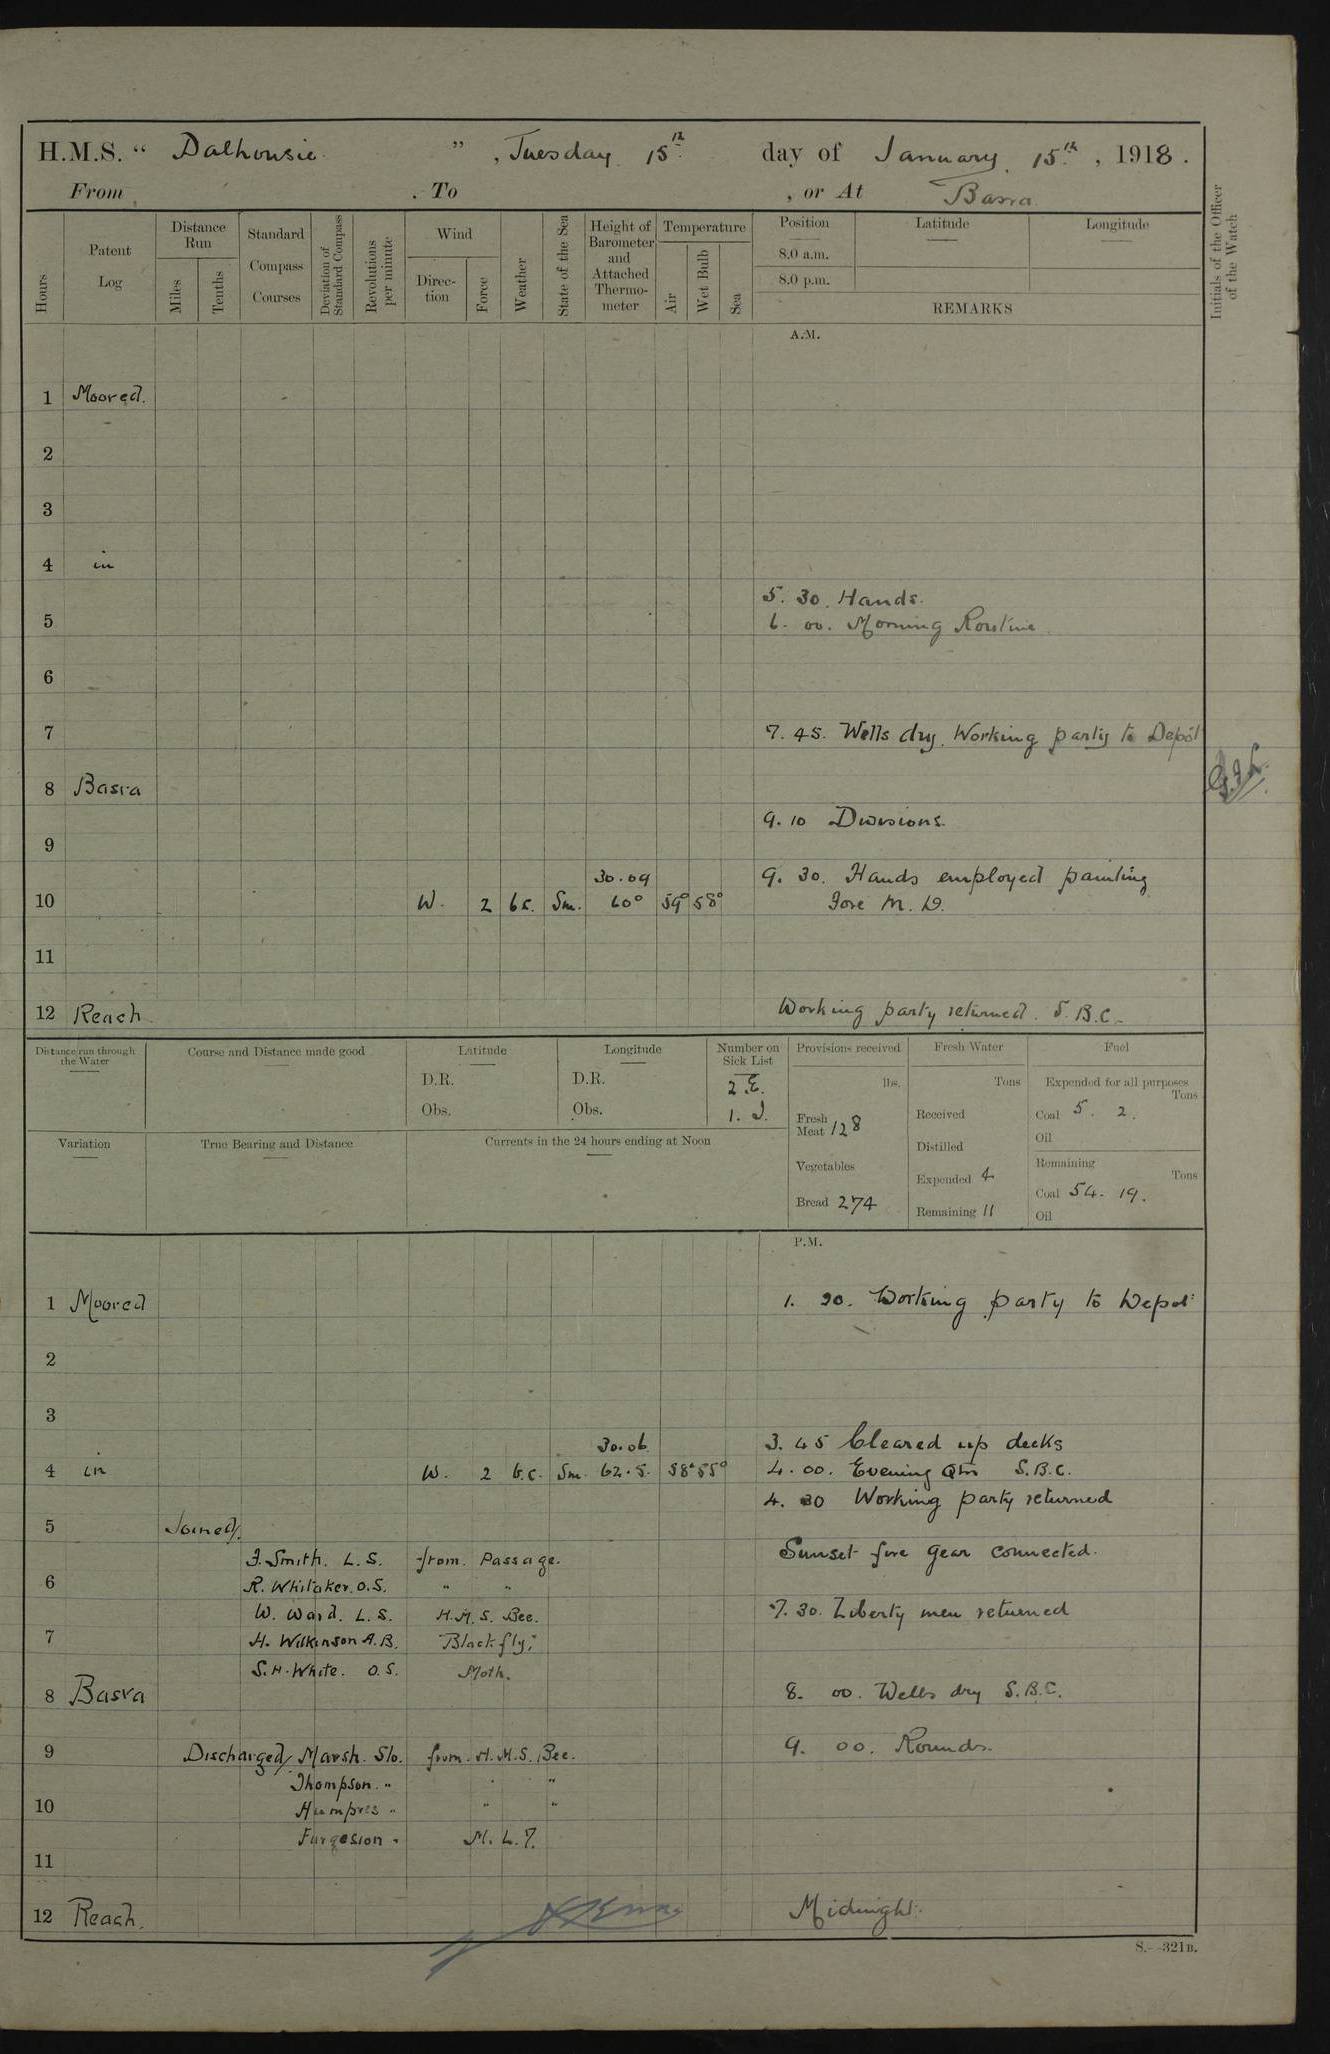 H.M.S. “ Dalhousie ” , Tuesday 15th day of January 15th , 1918 .
From . To , or At Basra
Hours
Patent Log
Distance Run
Miles
Tenths
Standard Compass Courses
Deviation of Standard Compass
Revolutions per minute
Wind
Direction
Force
Weather
State of the Sea
Height of Barometer and Attached Thermometer
Temperature
Air
Wet Bulb
Sea
Position
8.0 a.m.
8.0 p.m.
Latitude
Longitude
REMARKS
Initials of the Officer of the Watch
A.M.
1 Moored.
2
3
4 in
5. 30. Hands.
5 6. 00. Morning Routine
6
7 7. 45. Wells dry. Working party to Depôt
8 Basra
9. 10 Divisions.
9
30.09 9. 30. Hands employed painting
10 W. 2 bc. Sm. 60° 59° 58° Fore M. D.
11
12 Reach Working party returned. S.B.C.
Distance run through the Water
Course and Distance made good
Latitude
D.R.
Obs.
Longitude
D.R.
Obs.
Number on Sick List
2 E.
1. I.
Provisions received
lbs.
Fresh Meat 128
Vegetables
Bread 274
Fresh Water
Tons
Received
Distilled
Expended 4
Remaining 11
Fuel
Expended for all purposes
Tons
Coal 5. 2.
Oil
Remaining
Tons
Coal 54. 19.
Oil
Variation
True Bearing and Distance
Currents in the 24 hours ending at Noon
P.M.
1 Moored 1. 20. Working party to Depot
2
3
30.06 3. 45 Cleared up decks
4 in W. 2 b.c. Sm. 62.5. 58° 55° 4. 00. Evening Qtrs S.B.C.
4. 30 Working party returned
5 Joined/.
J. Smith. L.S. from Passage. Sunset fire gear connected.
6 R. Whitaker. O.S. " "
W. Ward. L.S. H.M.S. Bee. 7. 30. Liberty men returned
7 H. Wilkinson A.B. Blackfly.
S.H. White. O.S. Moth.
8 Basra 8. 00. Wells dry S.B.C.
9 Discharged/ Marsh. Sto. from. H.M.S. Bee. 9. 00. Rounds.
Thompson. " " "
10 Humpres " " "
Furgesion " M.L.7.
11
12 Reach. Midnight.
S.—321B.